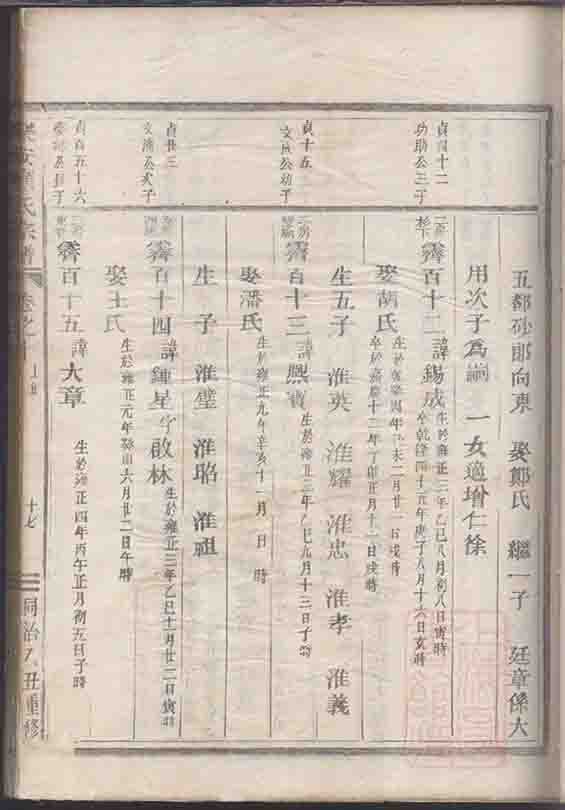 五都砂郎向東 娶鄭氏 繼一子 廷章係大
用次子為嗣 一女適增仁徐
貞四十二
功助公三子
霽百十二 諱錫成 生於雍正三年乙巳八月初八日寅時
卒乾隆四十五年庚子八月十六日亥時
娶胡氏 生於乾隆四年己未二月廿一日戌時
卒於嘉慶十二年丁卯正月十一日戌時
生五子 淮英 淮耀 淮忠 淮孝 淮義
貞十五
公幼子
霽百十三 諱熙寶 生於雍正三年乙巳九月十三日子時
娶潘氏 生於雍正九年辛亥十一月 日 時
生 子 淮璧 淮玿 淮祖
貞廿三
公次子
霽百十四 諱鍾星字啟林 生於雍正三年乙巳十一月廿二日寅時
娶王氏 生於雍正元年癸卯六月廿二日午時
貞百五十六
公長子
霽百十五 諱大章 生於雍正四年丙午正月初五日子時
氏宗譜 卷之十 十七 同治乙丑重修